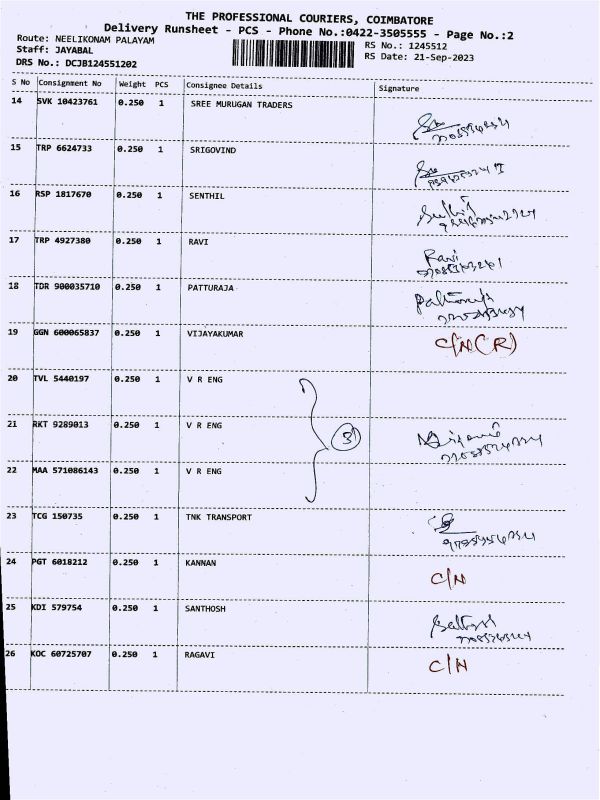 THE PROFESSIONAL COURIERS, COIMBATORE
Delivery Runsheet - PCS - Phone No.:0422-3505555 - Page No.:2
Route: NEELIKONAM PALAYAM
RS No.: 1245512
Staff: JAYABAL
RS Date: 21-Sep-2023
DRS No.: DCJB124551202
S No Consignment No Weight PCS Consignee Details Signature
14 SVK 10423761 0.250 1 SREE MURUGAN TRADERS
15 TRP 6624733 0.250 1 SRIGOVIND
16 RSP 1817670 0.250 1 SENTHIL
17 TRP 4927380 0.250 1 RAVI Ravi
18 TDR 900035710 0.250 1 PATTURAJA
19 GGN 600065837 0.250 1 VIJAYAKUMAR C/N (R)
20 TVL 5440197 0.250 1 V R ENG
21 RKT 9289013 0.250 1 V R ENG 3
22 MAA 571086143 0.250 1 V R ENG
23 TCG 150735 0.250 1 TNK TRANSPORT
24 PGT 6018212 0.250 1 KANNAN C/N
25 KDI 579754 0.250 1 SANTHOSH
26 KOC 60725707 0.250 1 RAGAVI C/N